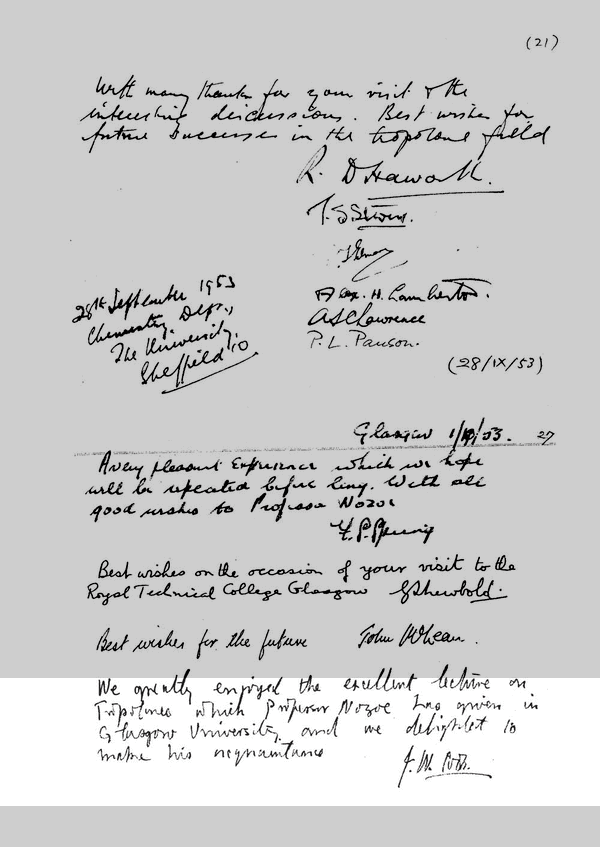 (21)
With many thanks for your visit & the
interesting discussions. Best wishes for
future successes in the tropolone field
R. D Haworth.
T. S. Stevens.
28th September 1953
Chemistry Dept.,
The University,
Sheffield 10
Alex. H. Lamberton.
A S C Lawrence
P. L. Pauson.
(28/IX/53)
Glasgow 1/10/53. 27
A very pleasant Experience which we hope
will be repeated before long. With all
good wishes to Professor Nozoe
F. S. Spring
Best wishes on the occasion of your visit to the
Royal Technical College Glasgow
Best wishes for the future John McLean.
We greatly enjoyed the excellent lecture on
Tropolones which Professor Nozoe has given in
Glasgow University, and we delighted to
make his acquaintance
J. W. Cook.